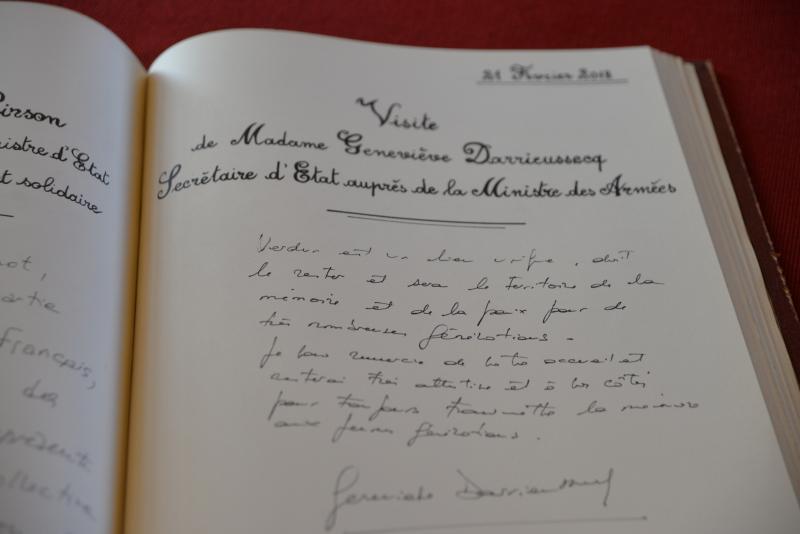 irson
istre d'Etat
t solidaire
ot,
artie
Français,
des
présente
collective
21 Février 2018
Visite
de Madame Geneviève Darrieussecq
Secrétaire d'Etat auprès de la Ministre des Armées
Verdun est un lieu unique, doit
le rester et sera le territoire de la
mémoire et de la paix pour de
très nombreuses générations.
Je vous remercie de votre accueil et
resterai très attentive et à vos côtés
pour toujours transmettre la mémoire
aux jeunes générations.
Geneviève Darrieussecq